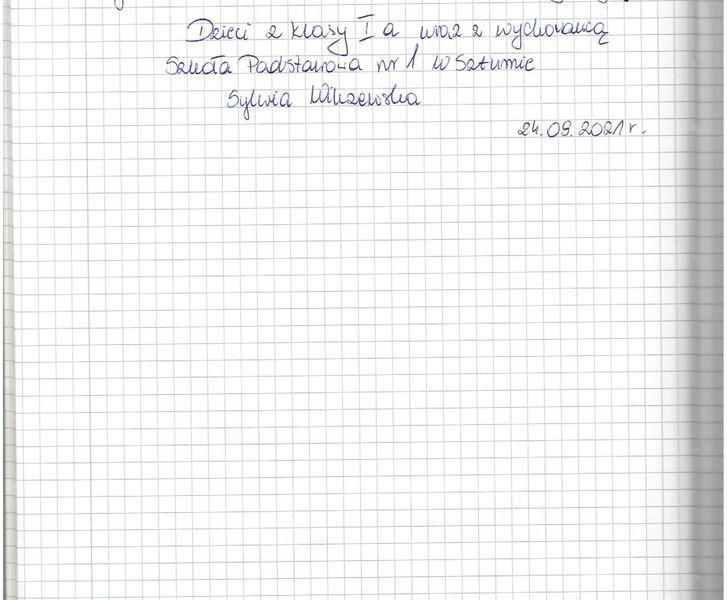 Dzieci z klasy I a wraz z wychowawcą
Szkoła Podstawowa nr 1 w Sztumie
Sylwia Wilczewska
24.09.2021 r.